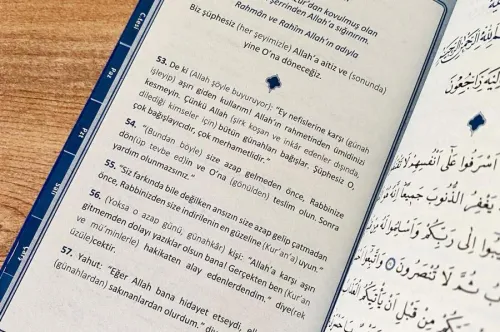 Pzt
Salı
Çarş
dan kovulmuş olan
şerrinden Allah'a sığınırım.
Rahmân ve Rahîm Allah'ın adıyla
Biz şüphesiz (her şeyimizle) Allah'a aitiz ve (sonunda)
yine O'na döneceğiz.
53. De ki (Allah şöyle buyuruyor): "Ey nefislerine karşı (günah
işleyip) aşırı giden kullarım! Allah'ın rahmetinden ümidinizi
kesmeyin. Çünkü Allah (şirk koşan ve inkâr edenler dışında,
dilediği kimseler için) bütün günahları bağışlar. Şüphesiz O,
çok bağışlayıcıdır, çok merhametlidir."
54. "(Bundan böyle) size azap gelmeden önce, Rabbinize
dön(üp tevbe edin ve O'na (gönülden) teslim olun. Sonra
yardım olunmazsınız."
55. "Siz farkında bile değilken ansızın size azap gelip çatmadan
önce, Rabbinizden size indirilenin en güzeline (Kur'an'a) uyun."
56. (Yoksa o azap günü, günahkâr) kişi: "Allah'a karşı aşırı
gitmemden dolayı yazıklar olsun bana! Gerçekten ben (Kur'an
ve mü'minlerle) hakikaten alay edenlerdendim." diye(rek
üzüle)cektir.
57. Yahut: "Eğer Allah bana hidayet etseydi,
(günahlardan) sakınanlardan olurdum."
أَسْرَفُوا عَلَىٰ أَنْفُسِهِمْ لَا
يَغْفِرُ الذُّنُوبَ جَمِيعًا إِنَّهُ
إِلَىٰ رَبِّكُمْ وَأَسْلِمُوا لَهُ
ثُمَّ لَا تُنْصَرُونَ
مِنْ قَبْلِ أَنْ يَأْتِيَكُمُ